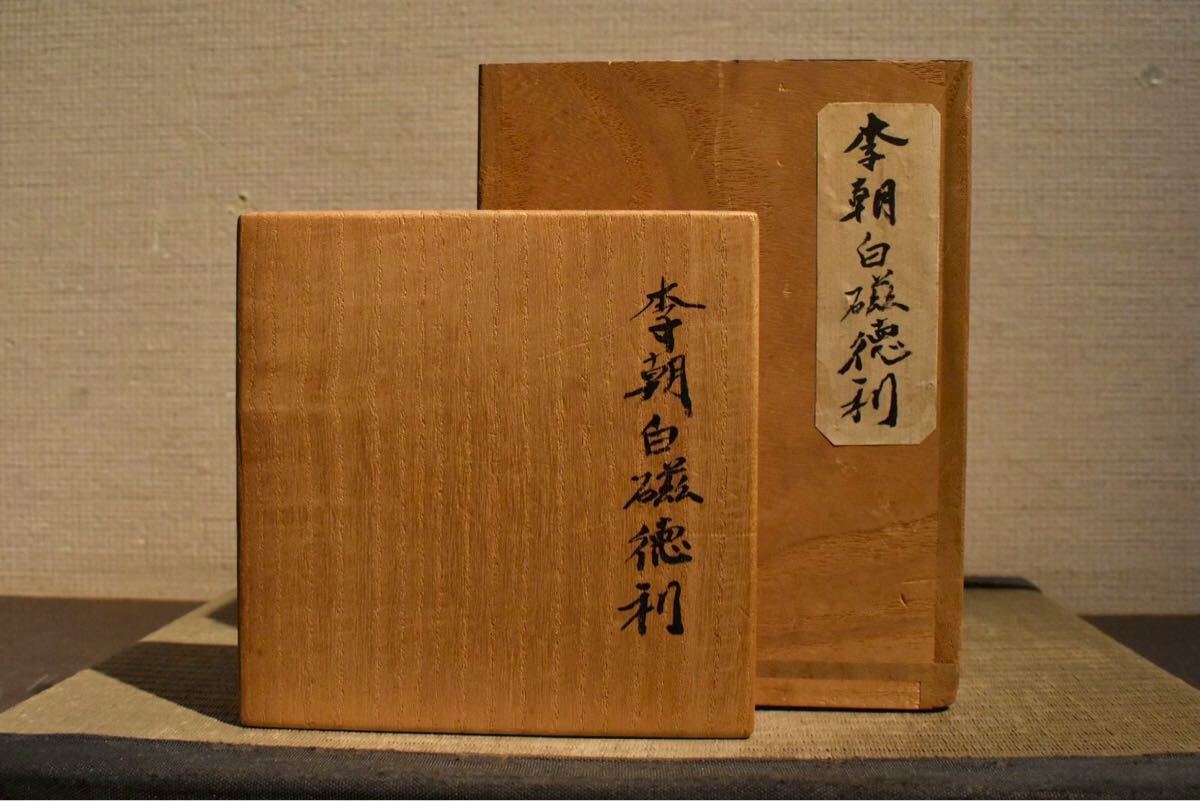 李朝白磁徳利
李朝白磁徳利